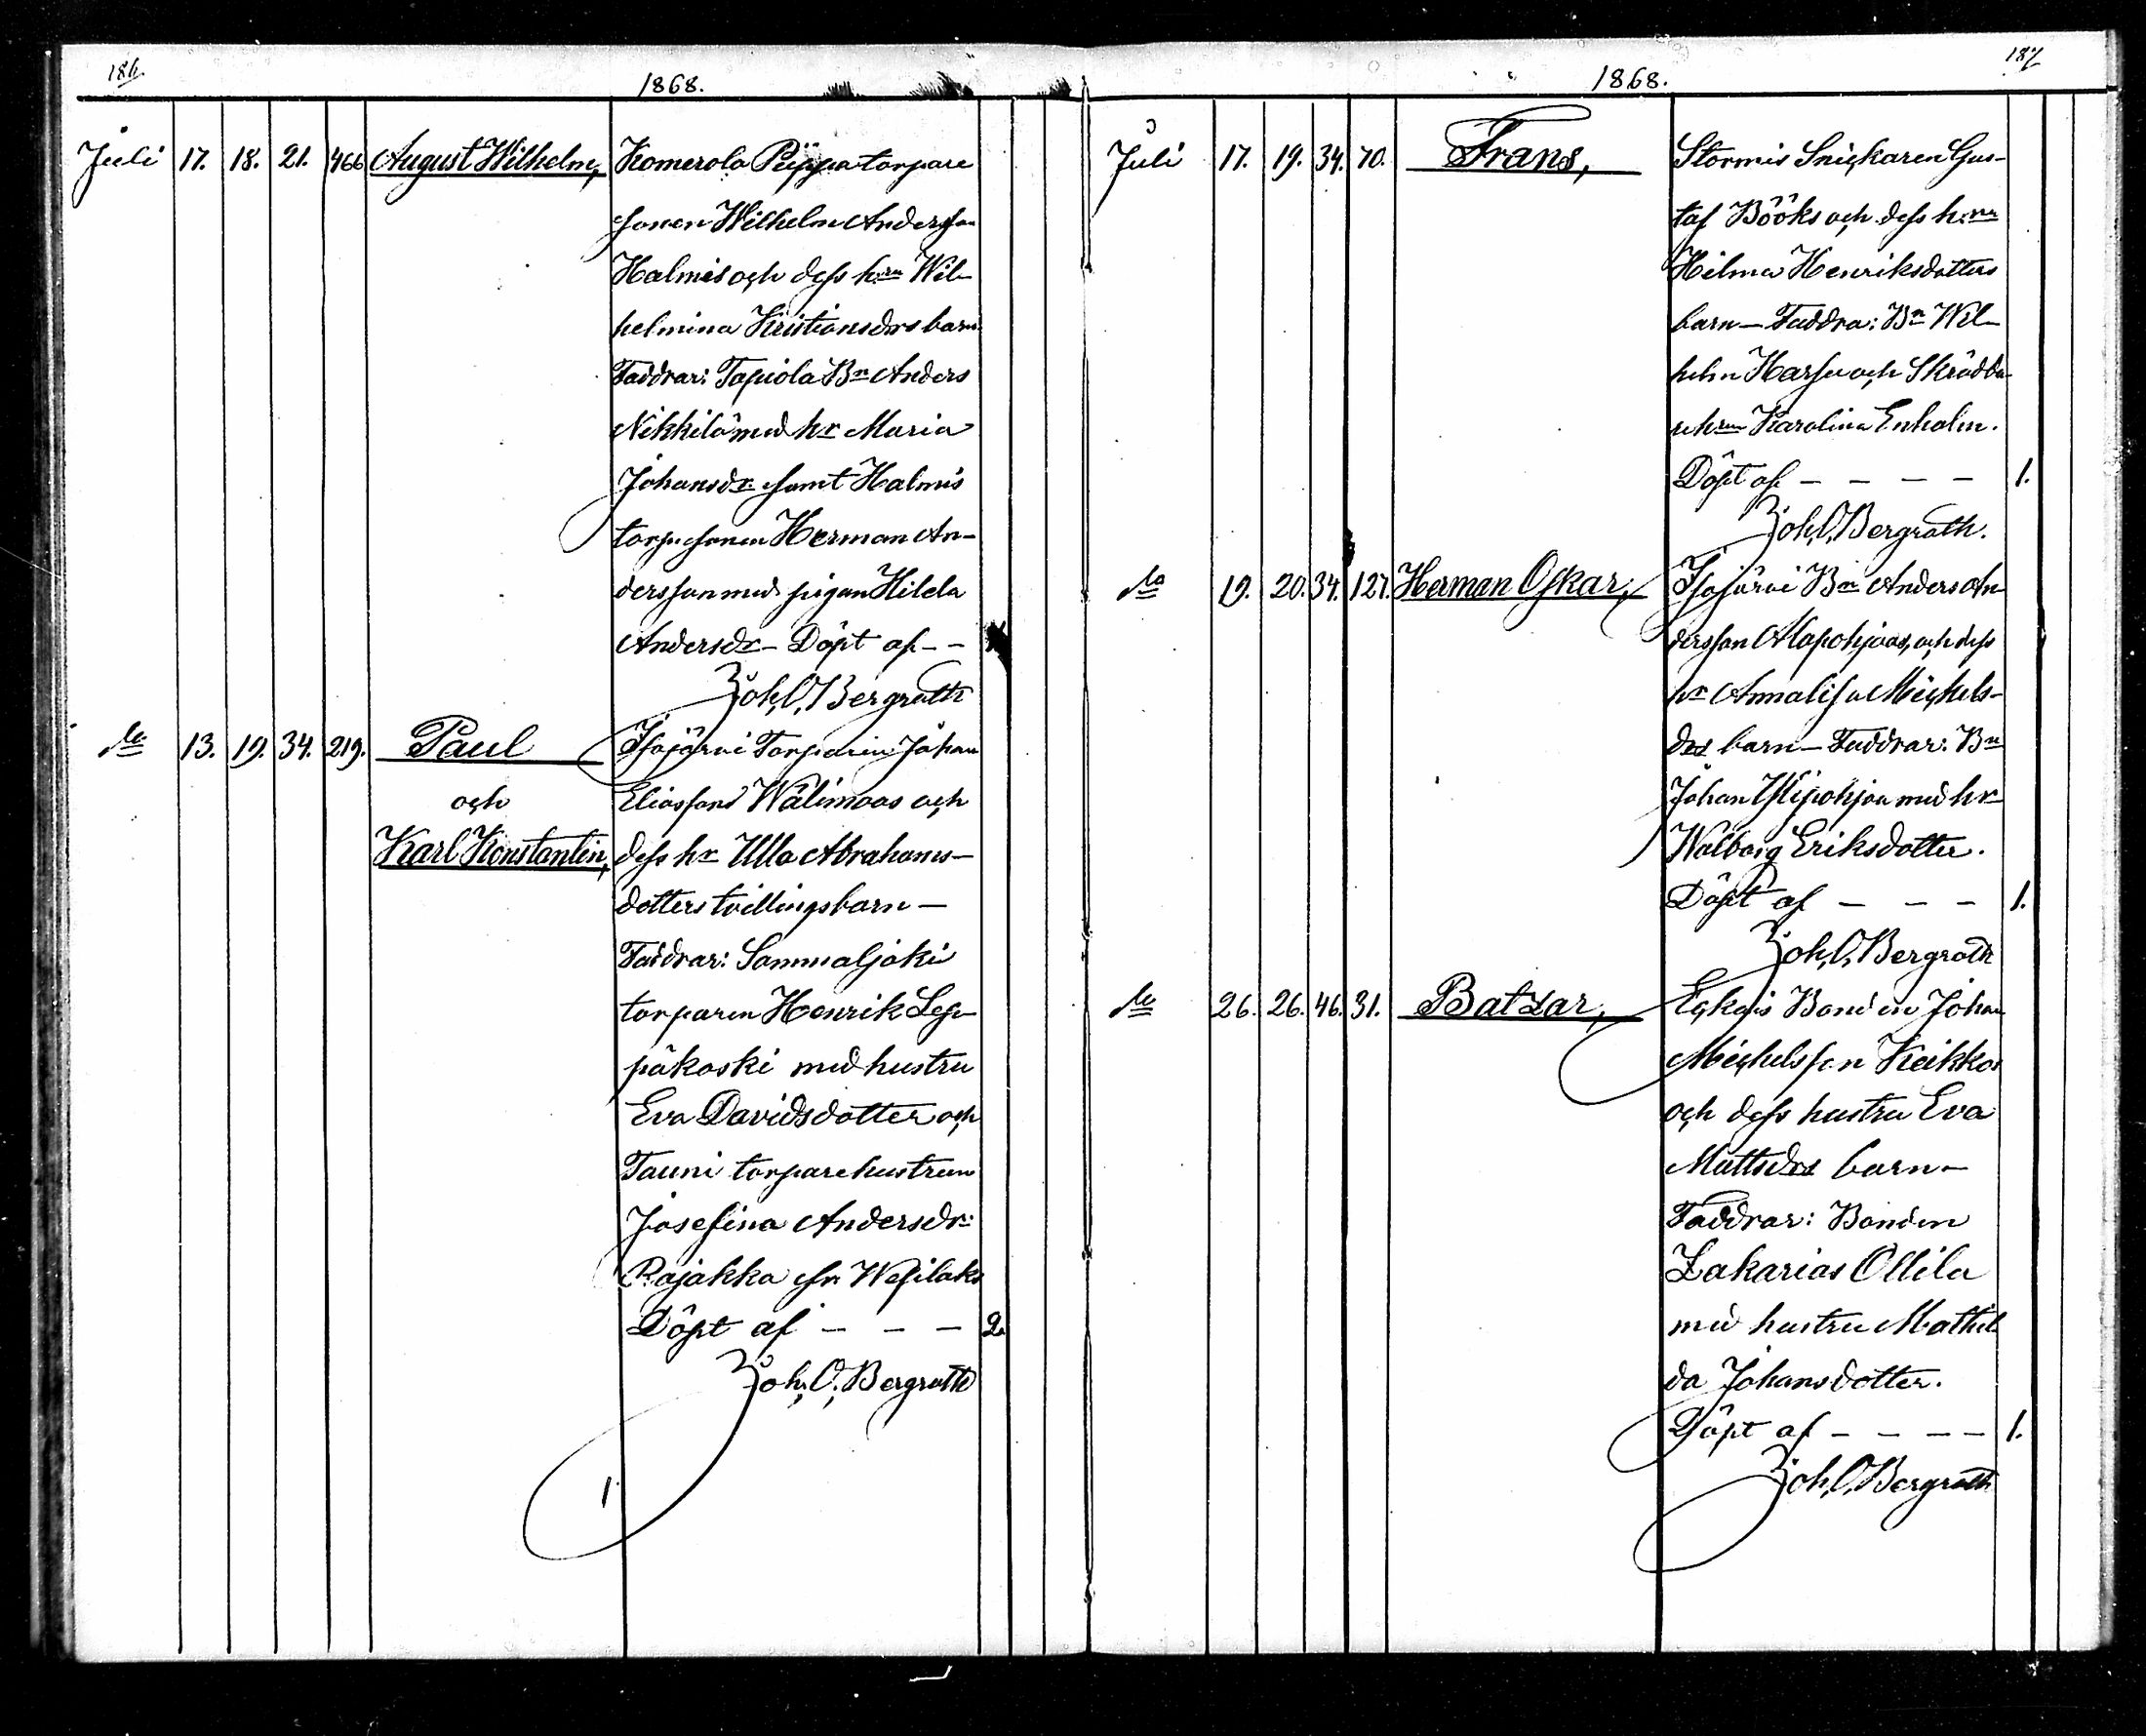 186.
1868.
Juli 17. 18. 21. 466 August Wilhelm, Komerola Piippa torpare
sonen Wilhelm Andersson
Halmis och dess h:ru Wil-
helmina Kristiansdrs barn
Faddrar: Tapiola Bn Anders
Nikkilä med hr Maria
Johansdr. samt Halmis
torparsonen Herman An-
dersson med pigan Hilda
Andersdr – Döpt af – –
Joh. O. Bergroth
do 13. 19. 34. 219. Paul Isojärvi Torparen Johan
och Eliassons Wälimaas och
Karl Konstantin, dess hr Ulla Abrahams-
dotters tvillingsbarn –
Faddrar: Sammaljoki
torparen Henrik Lep-
päkoski med hustru
Eva Davidsdotter och
Tauni torparehustrun
Josefina Andersdr:
Rajakka fr. Wesilaks
Döpt af – – – 2.
Joh. O. Bergroth
1.
187
1868.
Juli 17. 19. 34. 70. Frans, Stormis Snickaren Gus-
taf Bööks och dess h:rus
Hilma Henriksdotters
barn – Faddra: Bn Wil-
helm Harju och Skrädda-
rehrun Karolina Enholm.
Döpt af – – – – 1.
Joh. O. Bergroth.
do 19. 20. 34. 127. Herman Oskar, Isojärvi Bn Anders An-
dersson Alapohjaas, och dess
hr Annalisa Michels-
drs barn – Faddrar: Bn
Johan Ylipohja med hr
Walborg Eriksdotter.
Döpt af – – – 1.
Joh. O. Bergroth
do 26. 26. 46. 31. Batzar, Eckois Bonden Johan
Michelsson Keikkos
och dess hustru Eva
Mattsdrs barn –
Faddrar: Bonden
Zakarias Ollila
med hustru Mathil-
da Johansdotter.
Döpt af – – – – 1.
Joh. O. Bergroth